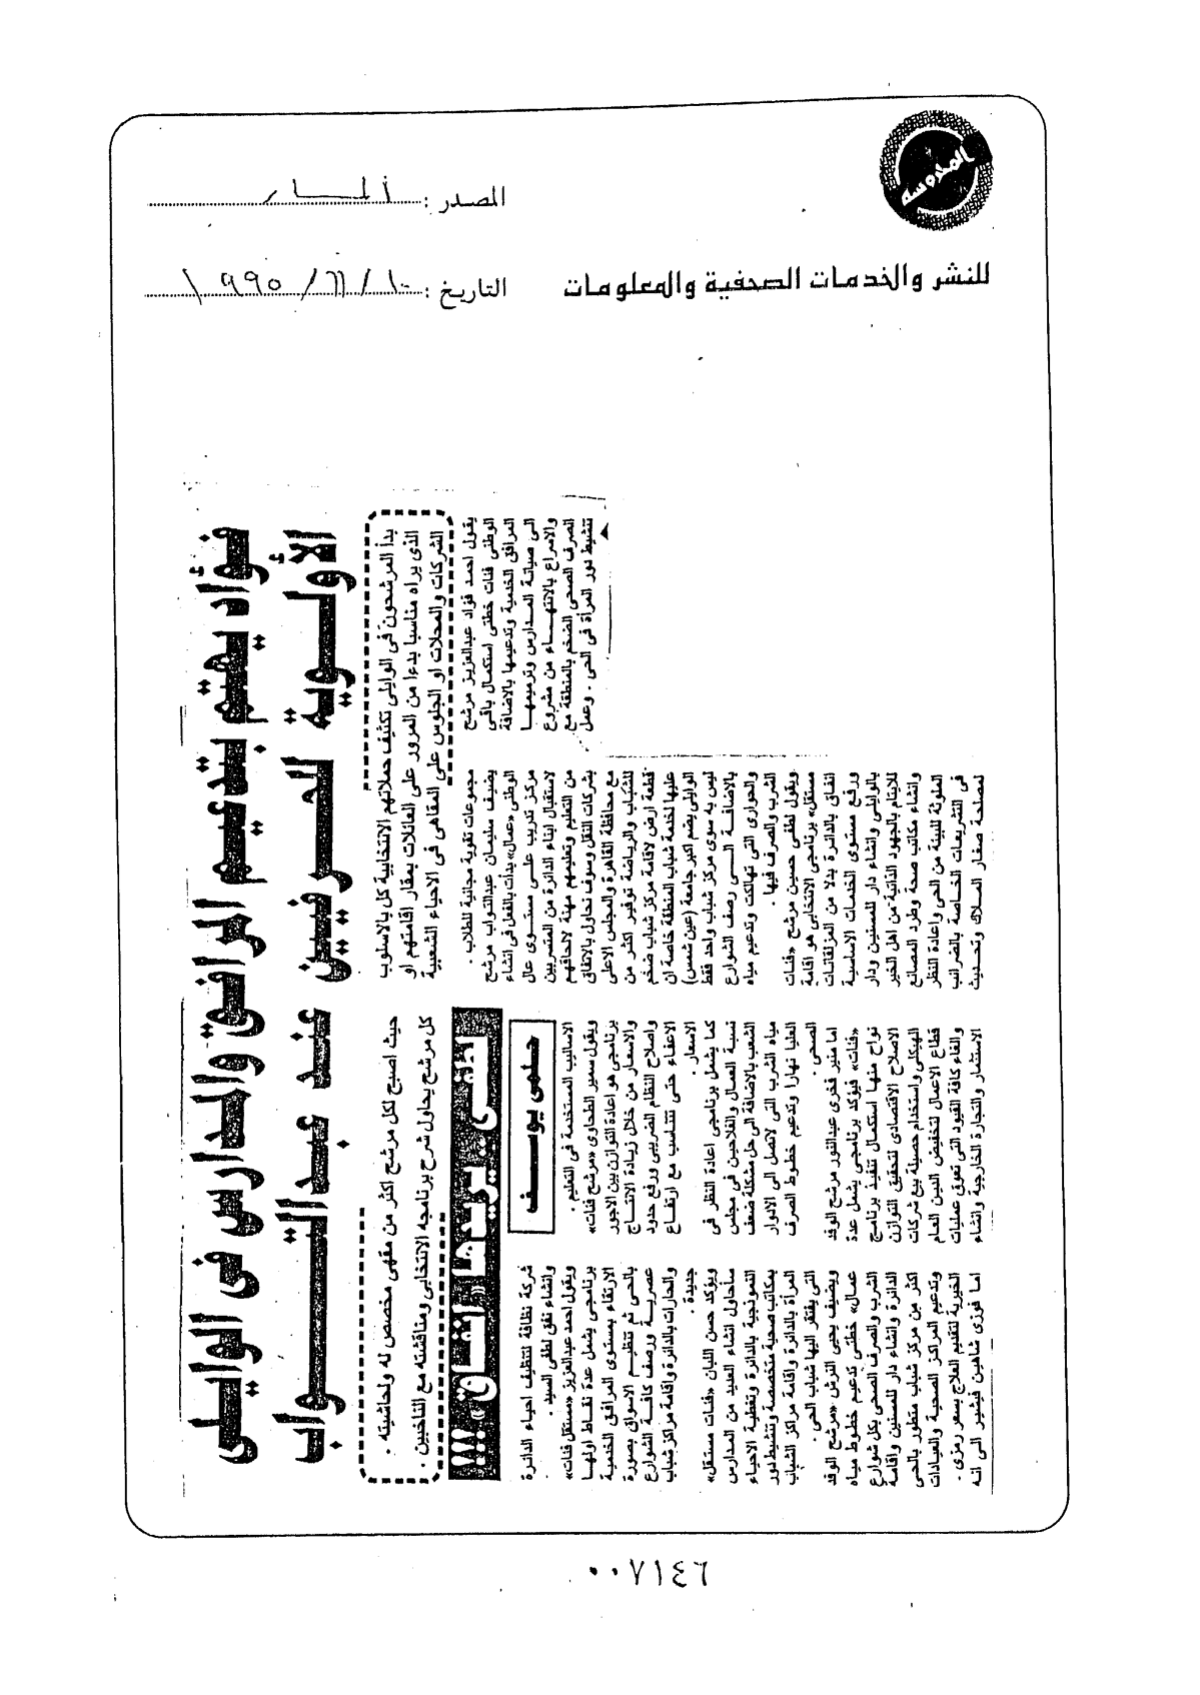 المحروسة
المصدر :
للنشر والخدمات الصحفية والمعلومات
التاريخ : ١٠ / ١١ / ١٩٩٥
فؤاد يهتم بتدعيم المرافق والمدارس فى الوايلى
الأولوية الحرفيين عند عبدالتواب
بدأ المرشحون فى الوايلى تكثيف حملاتهم الانتخابية كل بالاسلوب
الذى يراه مناسبا بدءا من المرور على العائلات بمقار اقامتهم او
الشركات والمحلات او الجلوس على المقاهى فى الاحياء الشعبية
حيث اصبح لكل مرشح اكثر من مقهى مخصص له ولحاشيته .
كل مرشح يحاول شرح برنامجه الانتخابى ومناقشته مع الناخبين .
لطفى يريدها انفاق !!!
حلمى يوسف
يقول احمد فؤاد عبدالعزيز مرشح
الوطنى فئات خطتى استكمال باقى
المرافق الخدمية وتدعيمها بالاضافة
الى صيانة المدارس وترميمها
والاسراع بالانتهاء من مشروع
الصرف الصحى الضخم بالمنطقة مع
تنشيط دور المرأة فى الحى . وعمل
مجموعات تقوية مجانية للطلاب .
يضيف سليمان عبدالتواب مرشح
الوطنى «عمال» بدأت بالفعل فى انشاء
مركز تدريب على مستوى عال
لاستقبال ابناء الدائرة من المتسربين
من التعليم وتعليمهم مهنة لالحاقهم
بشركات النقل وسوف نحاول بالاتفاق
مع محافظة القاهرة والمجلس الاعلى
للشباب والرياضة توفير اكثر من
قطعة ارض لاقامة مركز شباب ضخم
عليها لخدمة شباب المنطقة خاصة ان
الوايلى يضم اكبر جامعة (عين شمس)
ليس به سوى مركز شباب واحد فقط
بالاضافة الى رصف الشوارع
والحوارى التى تهالكت وتدعيم مياه
الشرب والصرف فيها .
ويقول لطفى حسين مرشح «فئات
مستقل» برنامجى الانتخابى هو اقامة
انفاق بالدائرة بدلا من المزلقانات
ورفع مستوى الخدمات الاساسية
بالوايلى وانشاء دار للمسنين ودار
للايتام بالجهود الذاتية من اهل الخير
وانشاء مكاتب صحة وطرد المصانع
الملوثة للبيئة من الحى واعادة النظر
فى التشريعات الخاصة بالضرائب
لمصلحة صغار الملاك وتحديث
الاساليب المستخدمة فى التعليم .
ويقول سمير الطحاوى «مرشح فئات»
برنامجى هو اعادة التوازن بين الاجور
والاسعار من خلال زيادة الانتاج
واصلاح النظام الضريبى ورفع حدود
الاعفاء حتى تتناسب مع ارتفاع
الاسعار .
كما يشمل برنامجى اعادة النظر فى
نسبة العمال والفلاحين فى مجلس
الشعب بالاضافة الى حل مشكلة ضعف
مياه الشرب التى لاتصل الى الادوار
العليا نهارا وتدعيم خطوط الصرف
الصحى .
اما منير فخرى عبدالنور مرشح الوفد
«فئات» فيؤكد برنامجى يشمل عدة
نواح منها استكمال تنفيذ برنامج
الاصلاح الاقتصادى لتحقيق التوازن
الهيكلى واستخدام حصيلة بيع شركات
قطاع الاعمال لتخفيض الدين العام
والغاء كافة القيود التى تعوق عمليات
الاستثمار والتجارة الخارجية وانشاء
شركة نظافة لتنظيف احياء الدائرة
وانشاء نفق لطفى السيد .
ويقول احمد عبدالعزيز «مستقل فئات»
برنامجى يشمل عدة نقاط اولها
الارتقاء بمستوى المرافق الخدمية
بالحى ثم تنظيم الاسواق بصورة
عصرية ورصف كافة الشوارع
والحارات بالدائرة واقامة مراكز شباب
جديدة .
ويؤكد حسن اللبان «فئات مستقل»
سأحاول انشاء العديد من المدارس
النموذجية بالدائرة وتغطية الاحياء
بمكاتب صحية متخصصة وتنشيط دور
المرأة بالدائرة واقامة مراكز الشباب
التى يفتقر اليها شباب الحى .
ويضيف يحيى الترش «مرشح الوفد
عمال» خطتى تدعيم خطوط مياه
الشرب والصرف الصحى بكل شوارع
الدائرة وانشاء دار للمسنين واقامة
اكثر من مركز شباب متطور بالحى
وتدعيم المراكز الصحية والعيادات
الخيرية لتقديم العلاج بسعر رمزى .
اما فوزى شاهين فيشير الى انه
٠٠٧١٤٦